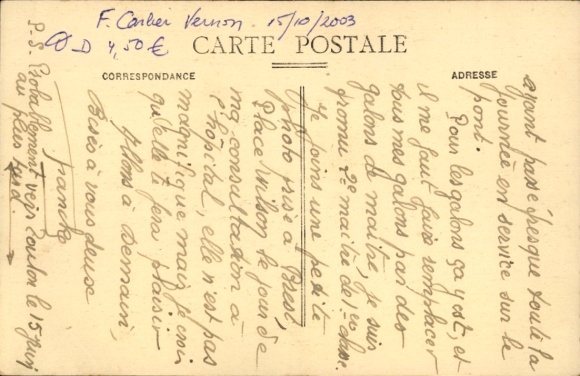 F. Carlier Vernon. 15/10/2003
D 4,50 €
CARTE POSTALE
CORRESPONDANCE
ADRESSE
ayant passé presque toute la
journée en service sur le
pont.
Pour les galons ça y est, et
il me faut faire remplacer
tous mes galons par des
galons de maître, je suis
promu 2e maître de 1ere classe.
Je joins une petite
photo prise à Brest,
Place Wilson le jour de
ma consultation à
l'hôpital, elle n'est pas
magnifique mais je crois
qu'elle te fera plaisir
Allons à demain,
Bises à vous deux
P.S. Probablement vers Toulon le 15 Juin
au plus tard.